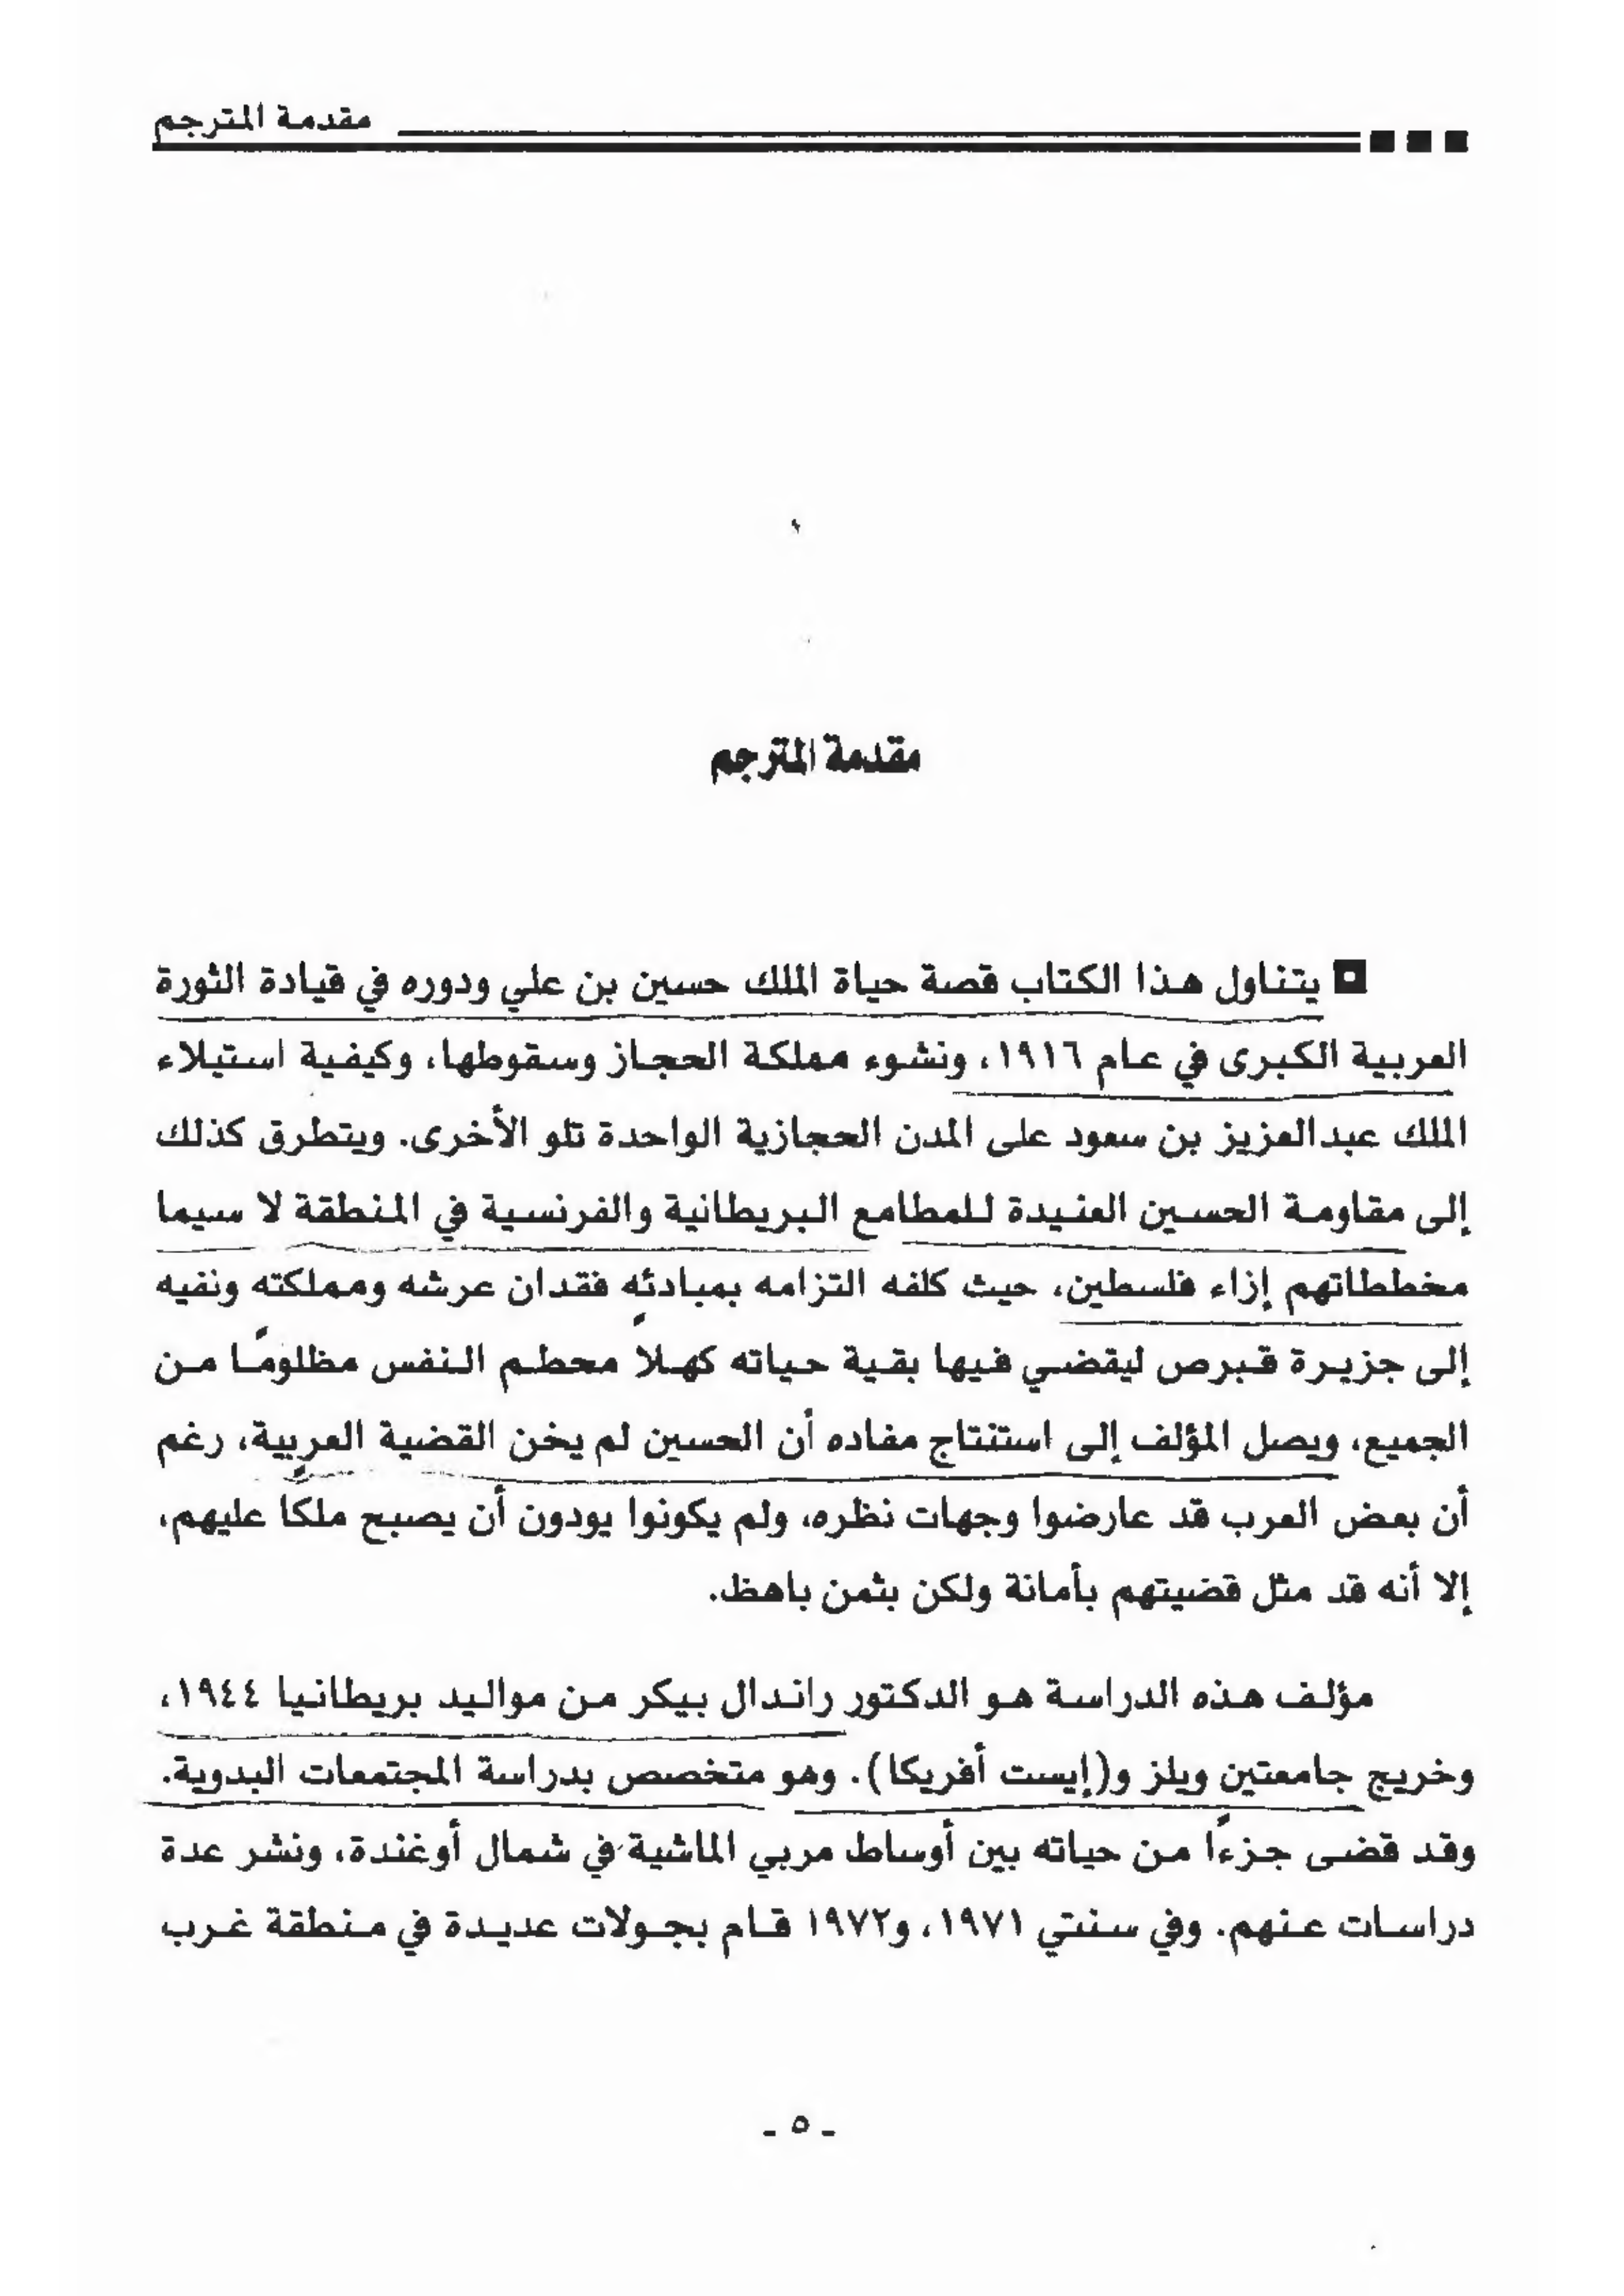 مقدمة المترجم
مقدمة المترجم
يتناول هذا الكتاب قصة حياة الملك حسين بن علي ودوره في قيادة الثورة
العربية الكبرى في عام ١٩١٦، ونشوء مملكة الحجاز وسقوطها، وكيفية استيلاء
الملك عبدالعزيز بن سعود على المدن الحجازية الواحدة تلو الأخرى. ويتطرق كذلك
إلى مقاومة الحسين العنيدة للمطامع البريطانية والفرنسية في المنطقة لا سيما
مخططاتهم إزاء فلسطين، حيث كلفه التزامه بمبادئه فقدان عرشه ومملكته ونفيه
إلى جزيرة قبرص ليقضي فيها بقية حياته كهلاً محطم النفس مظلومًا من
الجميع، ويصل المؤلف إلى استنتاج مفاده أن الحسين لم يخن القضية العربية، رغم
أن بعض العرب قد عارضوا وجهات نظره، ولم يكونوا يودون أن يصبح ملكًا عليهم،
إلا أنه قد مثل قضيتهم بأمانة ولكن بثمن باهظ.
مؤلف هذه الدراسة هو الدكتور راندال بيكر من مواليد بريطانيا ١٩٤٤،
وخريج جامعتين ويلز و(إيست أفريكا). وهو متخصص بدراسة المجتمعات البدوية.
وقد قضى جزءًا من حياته بين أوساط مربي الماشية في شمال أوغندة، ونشر عدة
دراسات عنهم. وفي سنتي ١٩٧١، و١٩٧٢ قام بجولات عديدة في منطقة غرب
- ٥ -